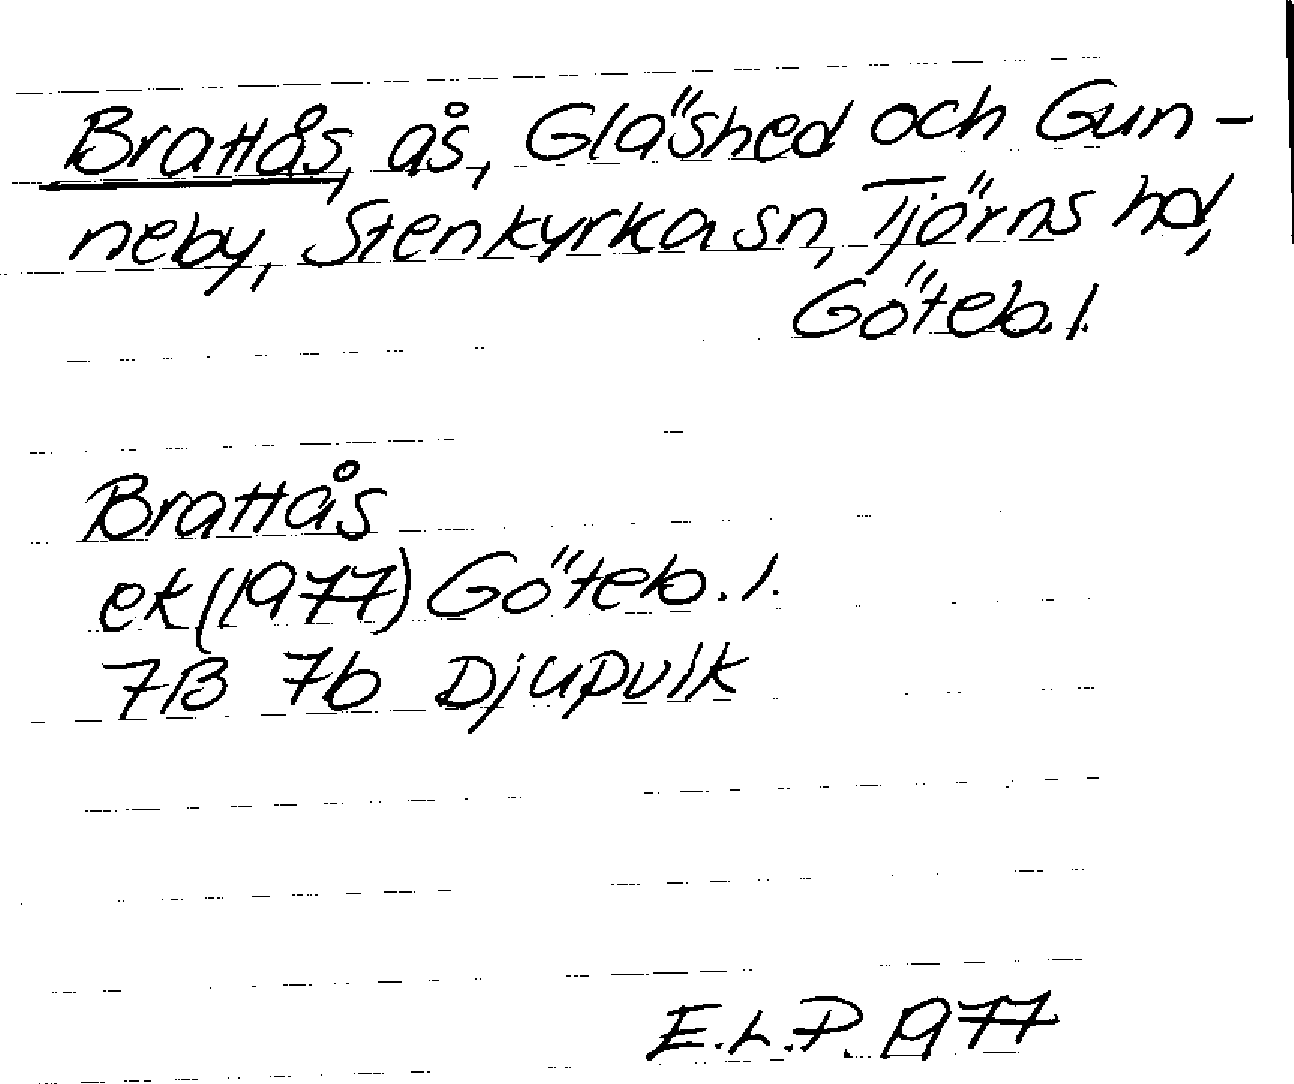 Brattås, ås, Gläshed och Gun-
neby, Stenkyrka sn, Tjörns hd,
Göteb. l.
Brattås
ek (1977) Göteb. l.
7B 7b Djupvik
E.L.P. 1977